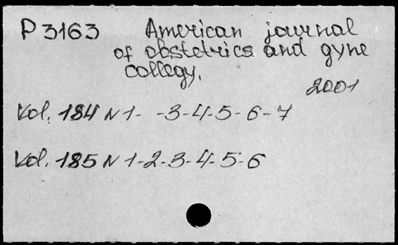 P 3163 American journal
of obstetrics and gyne
collogy.
2001
Vol. 184 N 1- -3-4-5-6-7
Vol. 185 N 1-2-3-4-5-6